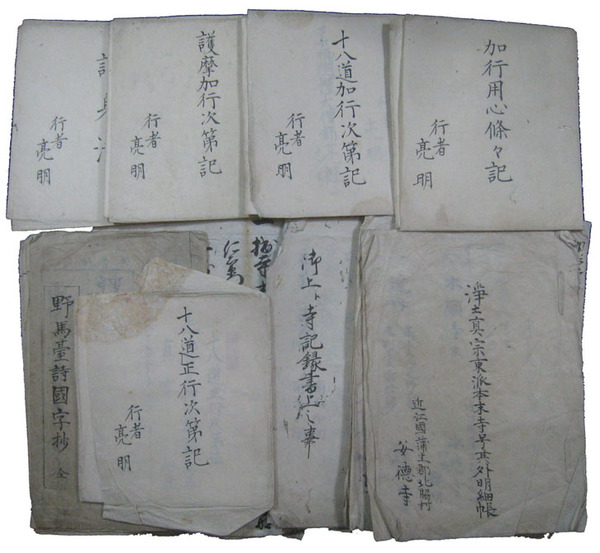 加行用心條々記
行者
亮明
十八道加行次第記
行者
亮明
護摩加行次第記
行者
亮明
護身法
行者
亮明
淨土真宗東派本末寺号其外明細帳
近江國蒲生郡北脇村
安德寺
御上ゟ寺記録書上之事
十八道正行次第記
行者
亮明
野馬臺詩國字抄 全